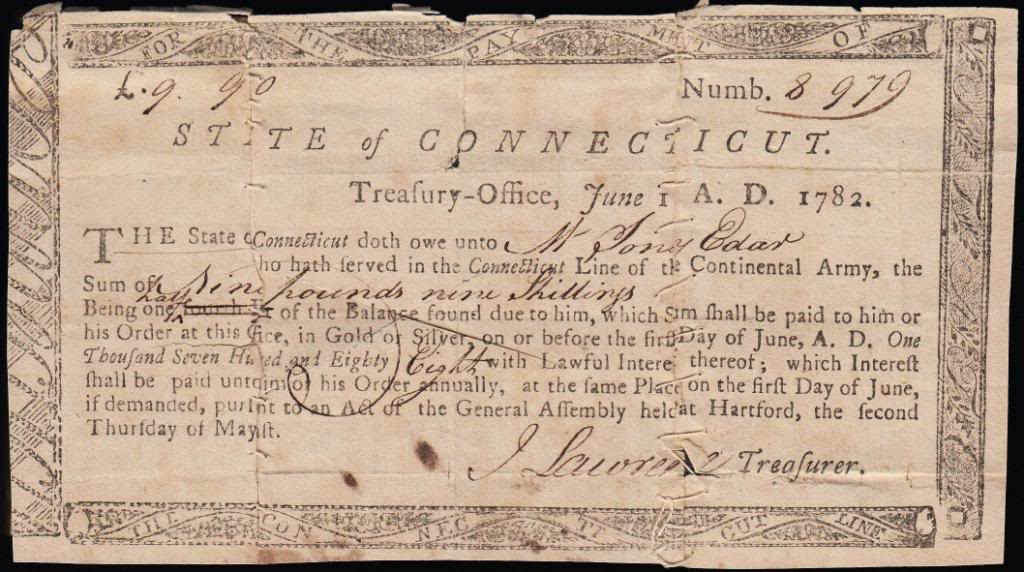 FOR THE PAY MENT OF
£. 9. 9 0
Numb. 8979
STATE of CONNECTICUT.
Treaſury-Office, June 1 A. D. 1782.
THE State Connecticut doth owe unto Mr
ho hath ſerved in the Connecticut Line of Continental Army, the
Sum of Nine pounds nine Shillings
Being one half fourth of the Balance found due to him, which ſhall be paid to him or
his Order at this in Gold or Silver, on or before the firſt Day of June, A. D. One
Thouſand Seven and Eighty Eight with Lawful thereof; which Intereſt
ſhall be paid of his Order annually, at the ſame Place on the firſt Day of June,
if demanded, to an Act of the General Aſſembly held at Hartford, the ſecond
Thurſday of
J Lawrence Treaſurer.
THE CON NEC TI CUT LINE.